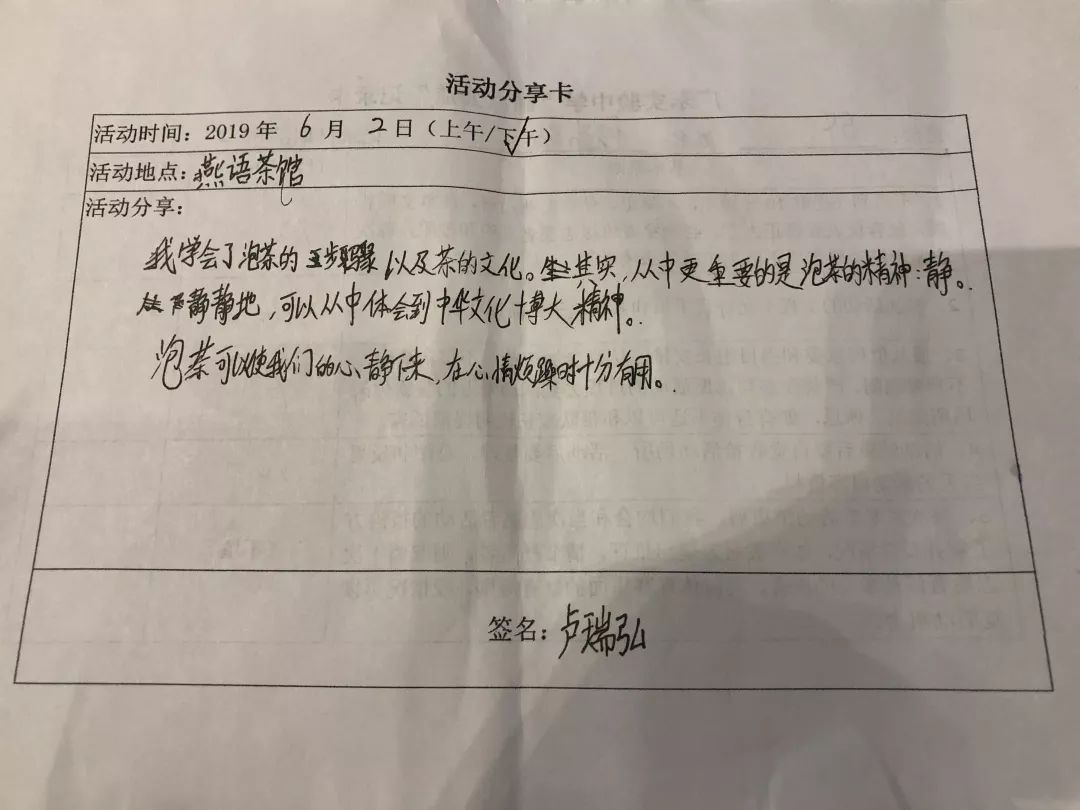 活动分享卡
活动时间：2019 年 6 月 2 日（上午/下午）
活动地点：燕语茶馆
活动分享：
我学会了泡茶的步骤以及茶的文化。其实，从中更重要的是泡茶的精神：静。
静静地，可以从中体会到中华文化博大精神。
泡茶可以使我们的心静下来，在心情烦躁时十分有用。
签名：卢瑞弘